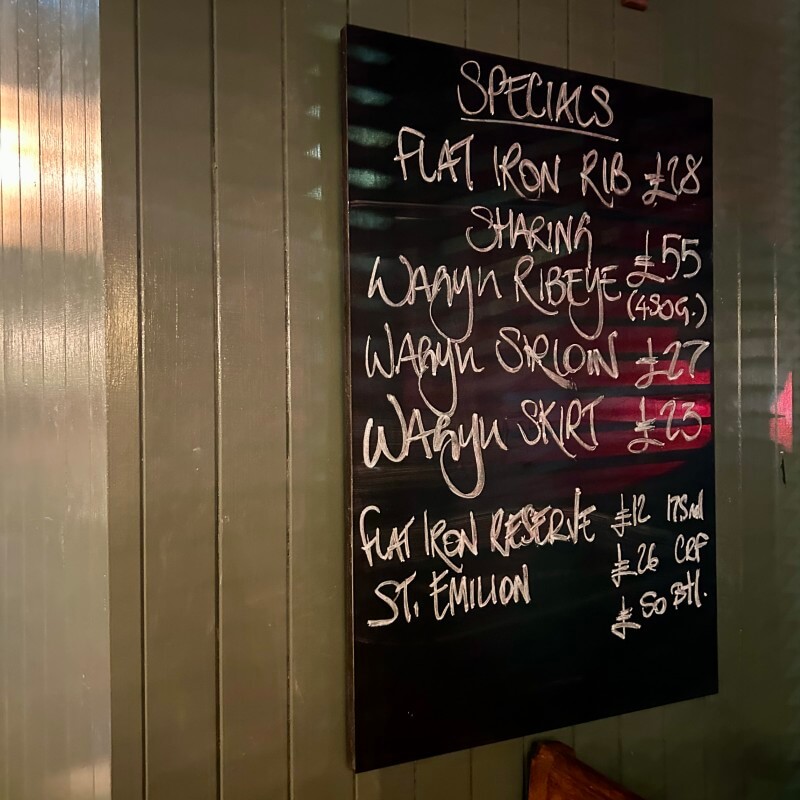 SPECIALS
FLAT IRON RIB £28
SHARING
WAGYU RIBEYE £55
(450G.)
WAGYU SIRLOIN £27
WAGYU SKIRT £23
FLAT IRON RESERVE £12 175ml
£26 CRF
ST. EMILION
£50 Btl.